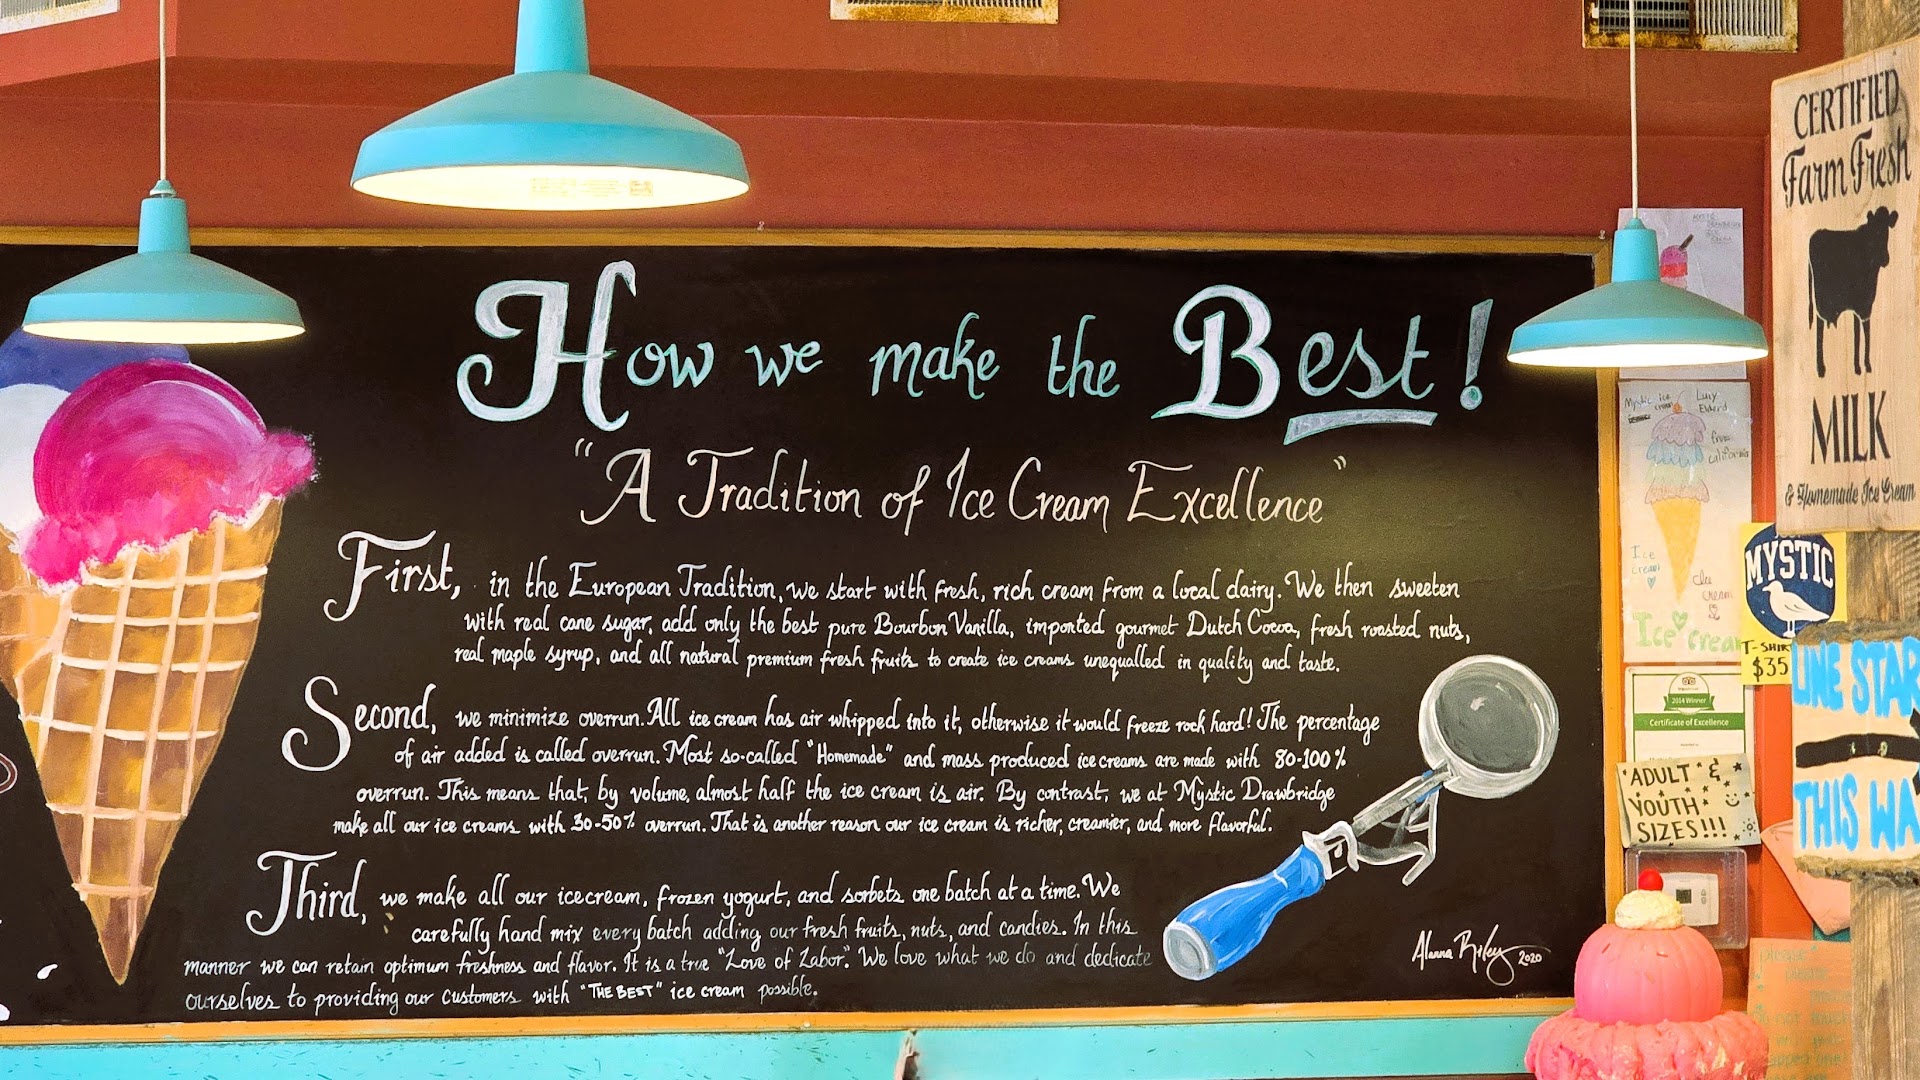 How we make the Best!
"A Tradition of Ice Cream Excellence"
First, in the European Tradition, we start with fresh, rich cream from a local dairy. We then sweeten
with real cane sugar, add only the best pure Bourbon Vanilla, imported gourmet Dutch Cocoa, fresh roasted nuts,
real maple syrup, and all natural premium fresh fruits to create ice creams unequalled in quality and taste.
Second, we minimize overrun. All ice cream has air whipped into it, otherwise it would freeze rock hard! The percentage
of air added is called overrun. Most so-called "Homemade" and mass produced ice creams are made with 80-100%
overrun. This means that, by volume, almost half the ice cream is air. By contrast, we at Mystic Drawbridge
make all our ice creams with 30-50% overrun. That is another reason our ice cream is richer, creamier, and more flavorful.
Third, we make all our icecream, frozen yogurt, and sorbets one batch at a time. We
carefully hand mix every batch adding our fresh fruits, nuts, and candies. In this
manner we can retain optimum freshness and flavor. It is a true "Love of Labor". We love what we do and dedicate
ourselves to providing our customers with "THE BEST" ice cream possible.
Alanna Riley 2020
CERTIFIED
Farm Fresh
MILK
& Homemade Ice Cream
Mystic ice cream
Lucy
from
california
Ice
cream
Ice
cream
Ice cream
MYSTIC
T-SHIR
$35
2014 Winner
Certificate of Excellence
ADULT &
YOUTH
SIZES!!!
LINE STAR
THIS WA
please